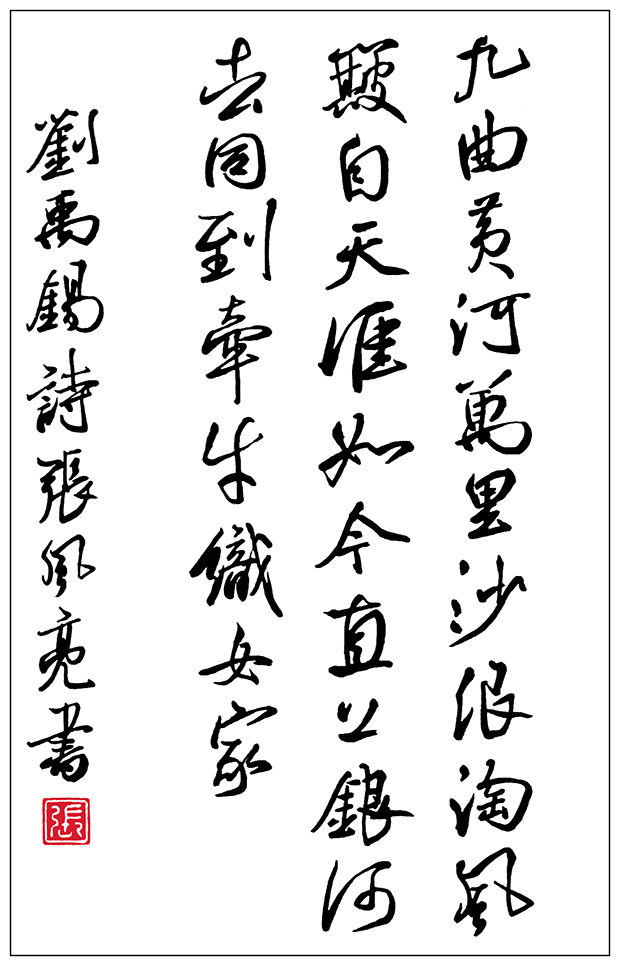 九曲黄河萬里沙浪淘風
簸自天涯如今直上銀河
去同到牽牛織女家
劉禹錫詩張風亮書
張